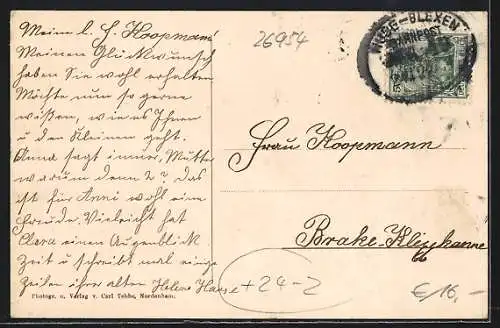 Meine l. F. Koopmann!
Meinen Glückwunsch
haben Sie wohl erhalten
Möchte nun so gerne
wißen, wie es Ihnen
u den Kleinen geht.
Anna sagt immer, Mutter
warum denn 2? das
ist für Anni wohl eine
Freude. Vielleicht hat
Clara einen Augenblick
Zeit u schreibt mal einige
Zeilen ihrer alten Helene
Photogr. u. Verlag v. Carl Tebbe, Nordenham.
26954
HUDE-BLEXEN
BAHNPOST
Frau Koopmann
Brake-Klippkanne
+ 24-2
£16,-